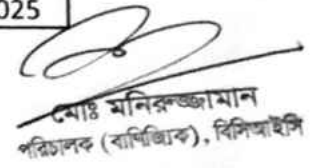 025
মোঃ মনিরুজ্জামান
পরিচালক (বাণিজ্যিক), বিসিআইসি